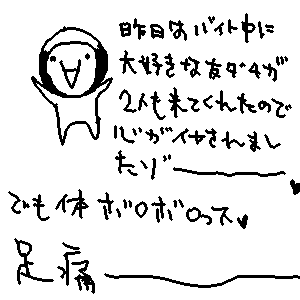 昨日はバイト中に
大好きな友ダチが
2人も来てくれたので
心がイヤされまし
たゾ――♥
でも体ボロボロっス♥
足痛――